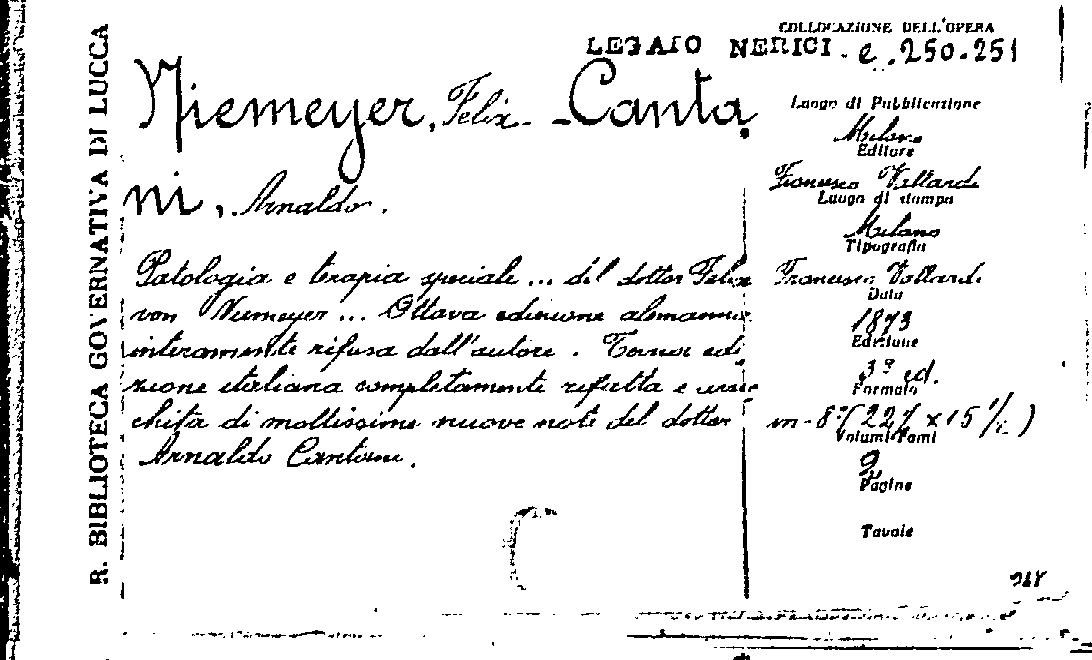 R. BIBLIOTECA GOVERNATIVA DI LUCCA
COLLOCAZIONE DELL'OPERA
LEGATO NERICI. e. 250-251
Niemeyer, Felix - Canta
ni, Arnaldo.
Patologia e terapia speciale ... del dottor Felix
von Niemeyer ... Ottava edizione alemanna
interamente rifusa dall'autore. Terza edi
zione italiana completamente rifatta e arric
chita di moltissime nuove note del dottor
Arnaldo Cantani.
Luogo di Pubblicazione
Milano
Editore
Francesco Vallardi
Luogo di stampa
Milano
Tipografia
Francesco Vallardi
Data
1873
Edizione
3ª ed.
Formato
in-8º (22 ½ x 15 ½)
Volumi-Tomi
2
Pagine
Tavole